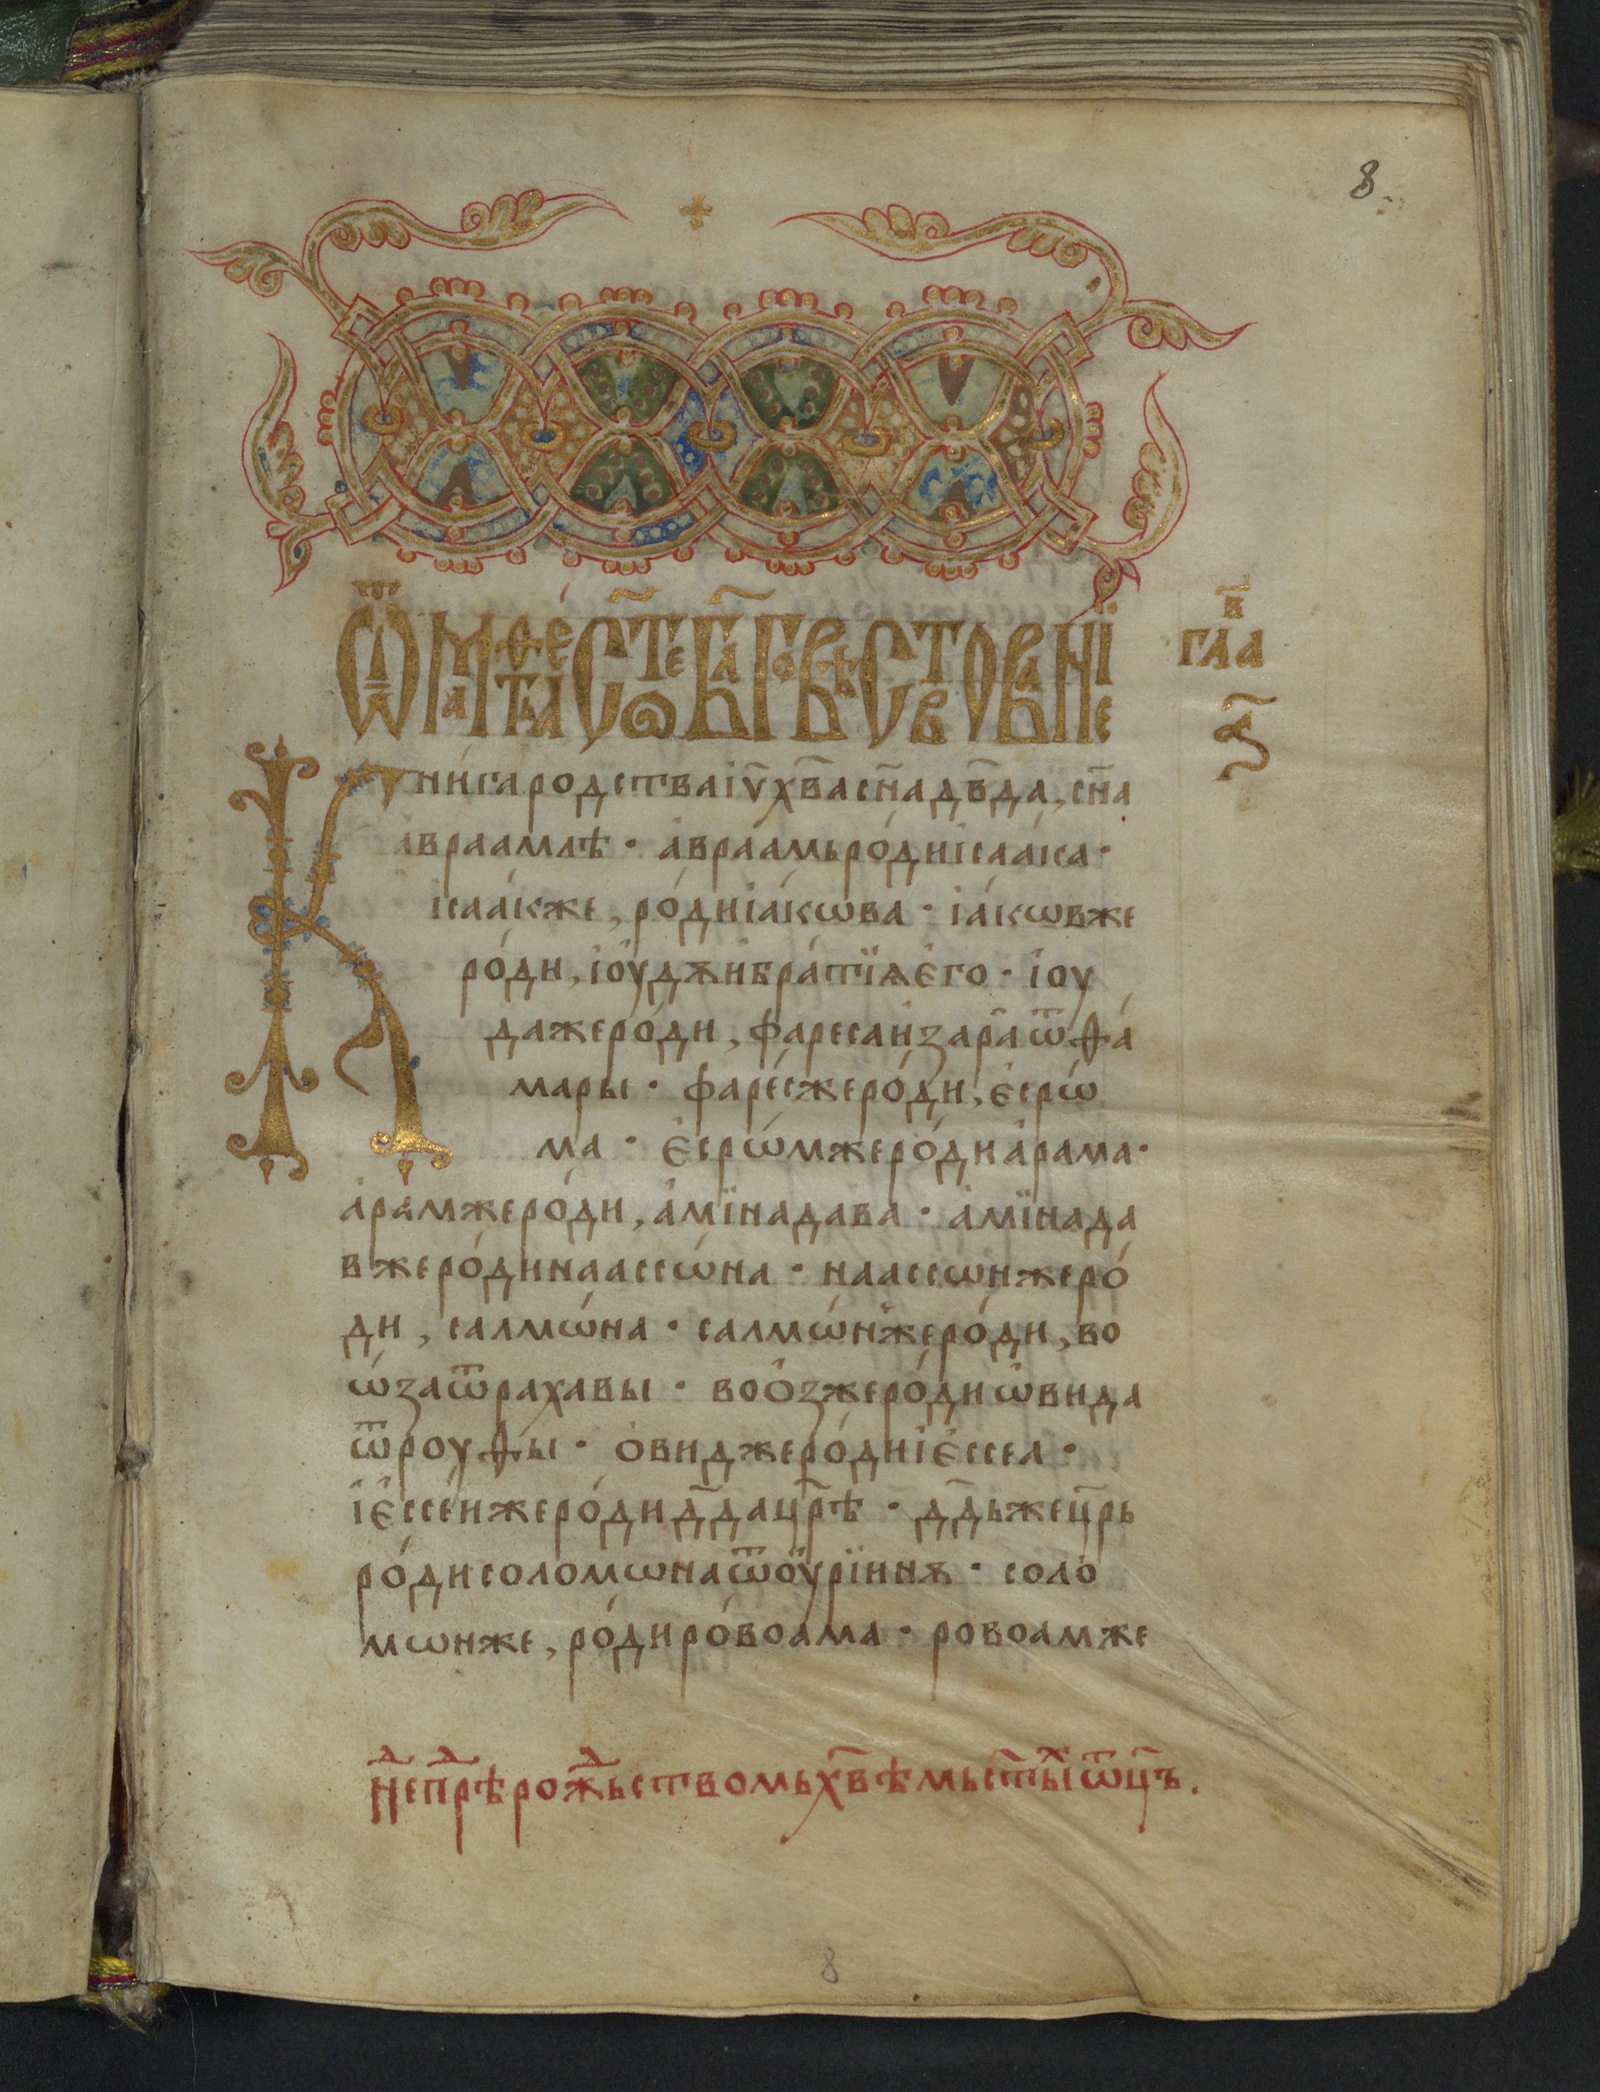 8.
Ѿ маѳе́а ст҃ое бл҃говѣствованїе
гла҃в
а҃
Кни́га родства і҆у҃ х҃ва сн҃а дв҃да, сн҃а
а҆враамлѣ · а҆враа́мь ро́ди і҆саа́ка ·
і҆саа́кже, ро́ди і҆а́кѡва · і҆а́кѡвже
ро́ди, і҆ѹ́дѫ и҆ бра́тїѧ є҆го · і҆ѹ
да же ро́ди, фа́реса и҆ за́ра ѿ ѳа
мары · фаре́сже ро́ди, є҆срѡ́
ма · Є҆срѡ́мже ро́ди а҆рама ·
а҆рамже ро́ди, а҆мїнадава · а҆мїнада
вже ро́ди наассѡ́на · наассѡ́нже ро́
ди, салмѡ́на · салмѡ́нже ро́ди, во
ѡ́за ѿ рахавы · воо́зже ро́ди ѡ҆вида
ѿ роуѳы · о҆видже ро́ди і҆є́ссеа ·
і҆є́ссеиже ро́ди дв҃да цр҃ѣ · дв҃дьже цр҃ь
ро́ди соломѡна ѿ оу҆рїинѫ · соло
мѡнже, ро́ди ро́воама · ровоамже
Неⷣ прⷣѣ рожⷣьствомь хв҃ѣмь ст҃ыⷯ ѿц҃ъ.
8